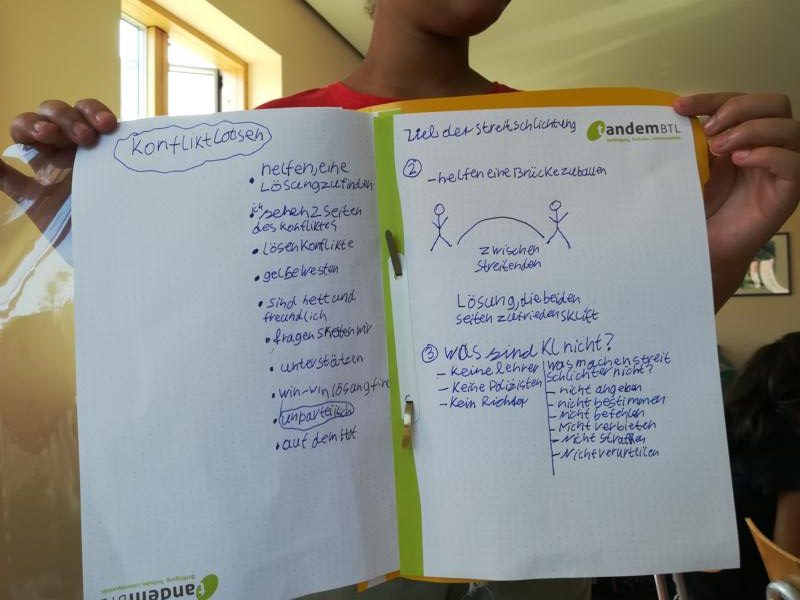 Konfliktlotsen
• helfen, eine
Lösung zu finden
• sehen 2 Seiten
des Konfliktes
• lösen Konflikte
• gelbe westen
• sind nett und
freundlich
• fragen
• unterstützen
• win-win lösung
• unparteiisch
• auf dem Hof
tandem BTL
Ziel der Streitschlichtung
tandem BTL
Befähigung. Teilhabe. Lebensqualität.
②
- helfen eine Brücke zu bauen
zwischen
Streitenden
Lösung, die beiden
seiten zufrieden
③ was sind KL nicht?
- Keine Lehrer
- Keine Polizisten
- Kein Richter
was machen streit
schlichter nicht?
- nicht angeben
- nicht bestimmen
- nicht befehlen
- Nicht verbieten
- Nicht strafen
- Nicht verurteilen